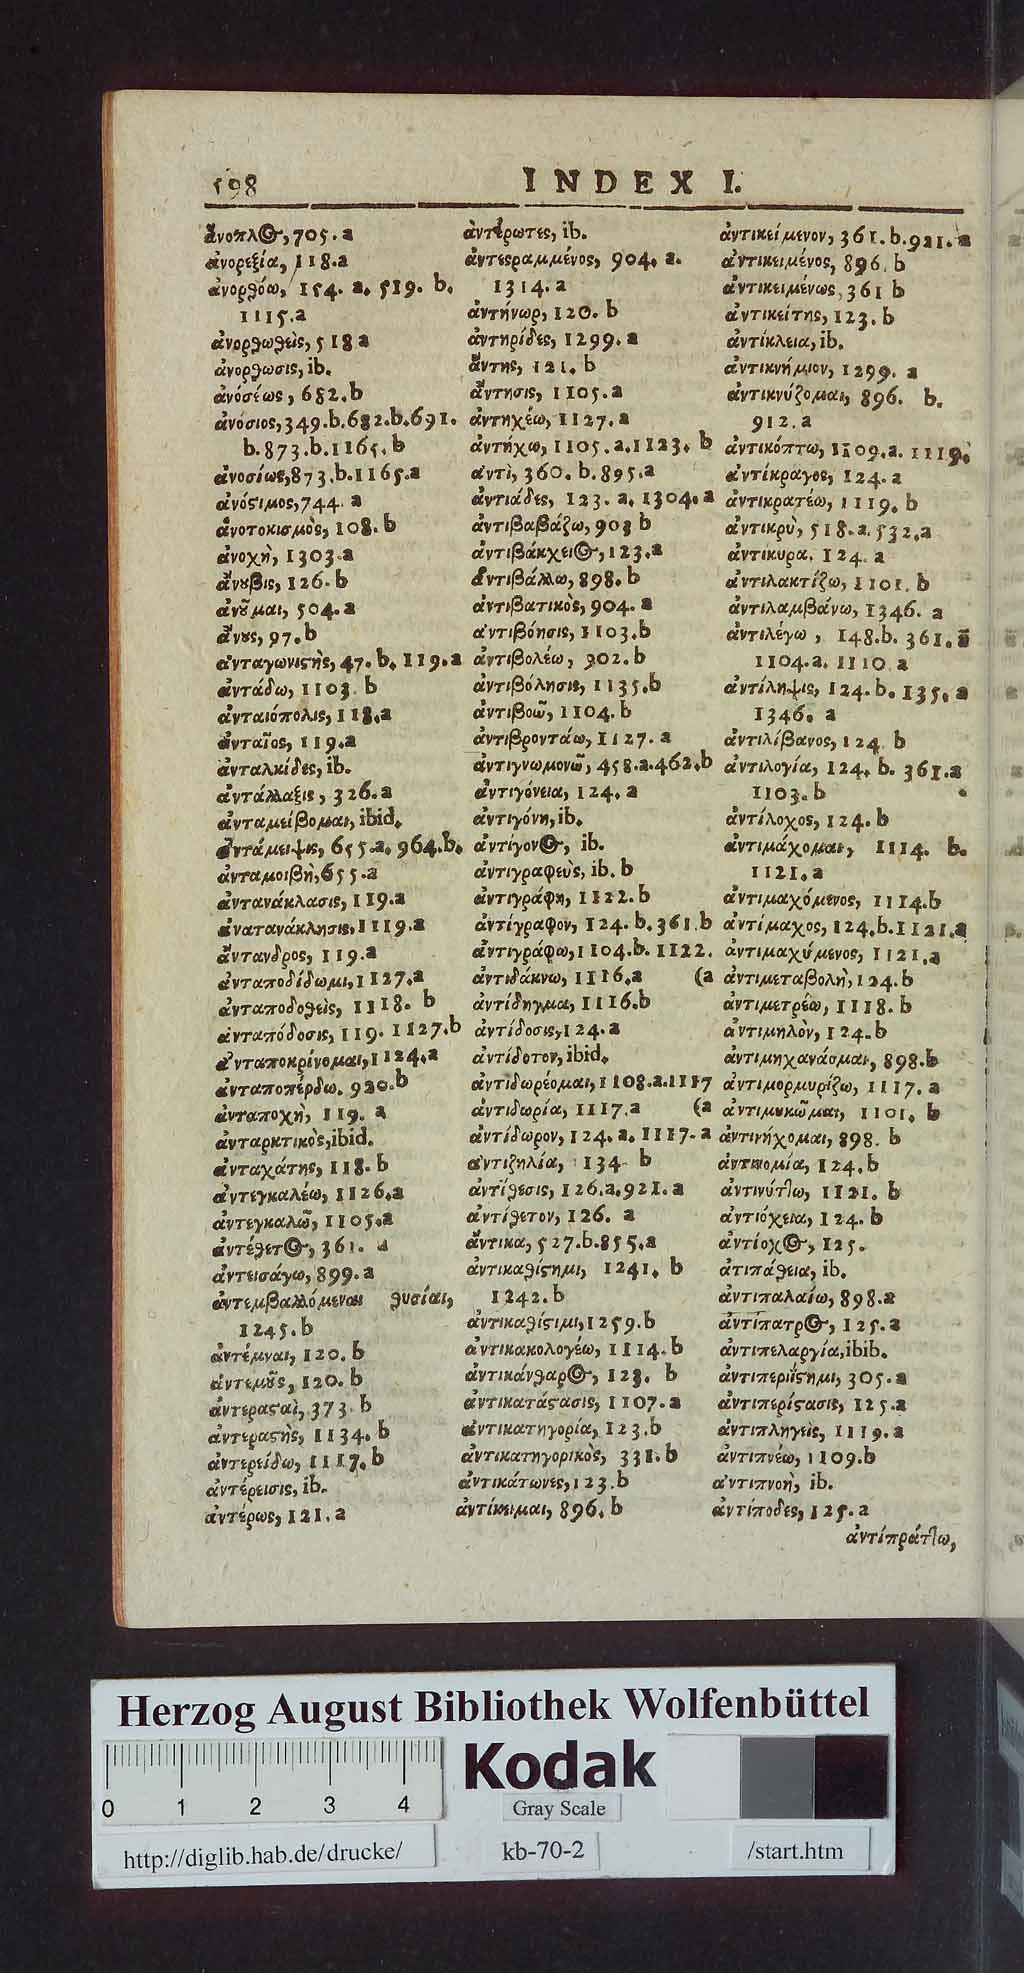 598 INDEX I.
ἄνοπλος, 705. a
ἀνορεξία, 118.a
ἀνορθόω, 154. a. 519. b.
1115.a
ἀνορθωθεὶς, 518 a
ἀνορθωσις, ib.
ἀνόσέως, 682.b
ἀνόσιος, 349.b.682.b.691.
b.873.b.1165. b
ἀνοσίως, 873.b.1165.a
ἀνόστιμος, 744. a
ἀνοτοκισμὸς, 108. b
ἀνοχὴ, 1303.a
ἄνουβις, 126. b
ἀνοῦμαι, 504. a
ἄνους, 97. b
ἀνταγωνιστὴς, 47. b. 119.a
ἀντάδω, 1103. b
ἀνταιόπολις, 118.a
ἀνταῖος, 119.a
ἀνταλκίδες, ib.
ἀντάλλαξις, 326. a
ἀνταμείβομαι, ibid.
ἀντάμειψις, 655.a. 964.b.
ἀνταμοιβὴ, 655.a
ἀντανάκλασις, 119.a
ἀνατανάκλησις, 1119.a
ἄντανδρος, 119.a
ἀνταποδίδωμι, 1127.a
ἀνταποδοθεὶς, 1118. b
ἀνταπόδοσις, 119. 1127.b
ἀνταποκρίνομαι, 1124.a
ἀνταποπέρδω. 920.b
ἀνταποχὴ, 119. a
ἀνταρκτικὸς, ibid.
ἀνταχάτης, 118. b
ἀντεγκαλέω, 1126.a
ἀντεγκαλῶ, 1105.a
ἀντέθετος, 361. a
ἀντεισάγω, 899. a
ἀντεμβαλλόμεναι θυσίαι,
1245. b
ἀντέμναι, 120. b
ἀντεμοῦς, 120. b
ἀντεραστaὶ, 373. b
ἀντεραστὴς, 1134. b
ἀντερείδω, 1117. b
ἀντέρεισις, ib.
ἀντέρως, 121. a
ἀντέρωτες, ib.
ἀντεστραμμένος, 904. a.
1314. a
ἀντήνωρ, 120. b
ἀντηρίδες, 1299. a
ἄντης, 121. b
ἄντησις, 1105. a
ἀντηχέω, 1127. a
ἀντήχω, 1105. a. 1123. b
ἀντὶ, 360. b. 895.a
ἀντιάδες, 123. a. 1304. a
ἀντιβαβάζω, 903 b
ἀντιβάκχειος, 123.a
ἀντιβάλλω, 898. b
ἀντιβατικὸς, 904. a
ἀντιβόησις, 1103.b
ἀντιβολέω, 902. b
ἀντιβόλησις, 1135.b
ἀντιβοῶ, 1104. b
ἀντιβροντάω, 1127. a
ἀντιγνωμονῶ, 458.a.462.b
ἀντιγόνεια, 124. a
ἀντιγόνη, ib.
ἀντίγονος, ib.
ἀντιγραφεὺς, ib. b
ἀντιγράφη, 1122. b
ἀντίγραφον, 124. b. 361. b
ἀντιγράφω, 1104.b. 1122.
ἀντιδάκνω, 1116.a (a
ἀντίδηγμα, 1116.b
ἀντίδοσις, 124. a
ἀντίδοτον, ibid.
ἀντιδωρέομαι, 1108.a.1117
ἀντιδωρία, 1117.a (a
ἀντίδωρον, 124. a. 1117. a
ἀντιζηλία, 134. b
ἀντίθεσις, 126.a.921. a
ἀντίθετον, 126. a
ἄντικα, 527.b.855.a
ἀντικαθίστημι, 1241. b
1242. b
ἀντικαθίστιμι, 1259.b
ἀντικακολογέω, 1114. b
ἀντικάνθαρος, 123. b
ἀντικατάστασις, 1107. a
ἀντικατηγορία, 123.b
ἀντικατηγορικὸς, 331. b
ἀντικάτωνες, 123.b
ἀντίκειμαι, 896. b
ἀντικείμενον, 361. b. 921. a
ἀντικειμένος, 896. b
ἀντικειμένως, 361 b
ἀντικείτης, 123. b
ἀντίκλεια, ib.
ἀντικνήμιον, 1299. a
ἀντικνύζομαι, 896. b.
912. a
ἀντικόπτω, 1109.a. 1119.
ἀντίκραγος, 124. a
ἀντικρατέω, 1119. b
ἀντικρὺ, 518. a. 532.a
ἀντικυρα. 124. a
ἀντιλακτίζω, 1101. b
ἀντιλαμβάνω, 1346. a
ἀντιλέγω, 148.b. 361. a
1104.a. 1110 a
ἀντίληψις, 124. b. 135. a
1346. a
ἀντιλίβανος, 124. b
ἀντιλογία, 124. b. 361.a
1103. b
ἀντίλοχος, 124. b
ἀντιμάχομαι, 1114. b.
1121.a
ἀντιμαχόμενος, 1114.b
ἀντίμαχος, 124.b.1121.a
ἀντιμαχύμενος, 1121.a
ἀντιμεταβολὴ, 124. b
ἀντιμετρέω, 1118. b
ἀντιμηλὸν, 124. b
ἀντιμηχανάομαι, 898.b
ἀντιμορμυρίζω, 1117. a
ἀντιμυκῶμαι, 1101. b
ἀντινήχομαι, 898. b
ἀντινομία, 124. b
ἀντινύττω, 1121. b
ἀντιόχεια, 124. b
ἀντίοχος, 125.
ἀτιπάθεια, ib.
ἀντιπαλαίω, 898.a
ἀντίπατρος, 125.a
ἀντιπελαργία, ibib.
ἀντιπεριΐστημι, 305. a
ἀντιπερίστασις, 125.a
ἀντιπληγεὶς, 1119. a
ἀντιπνέω, 1109.b
ἀντιπνοὴ, ib.
ἀντίποδες, 125. a
ἀντιπράττω,
Herzog August Bibliothek Wolfenbüttel
Kodak
0 1 2 3 4
Gray Scale
http://diglib.hab.de/drucke/ kb-70-2 /start.htm